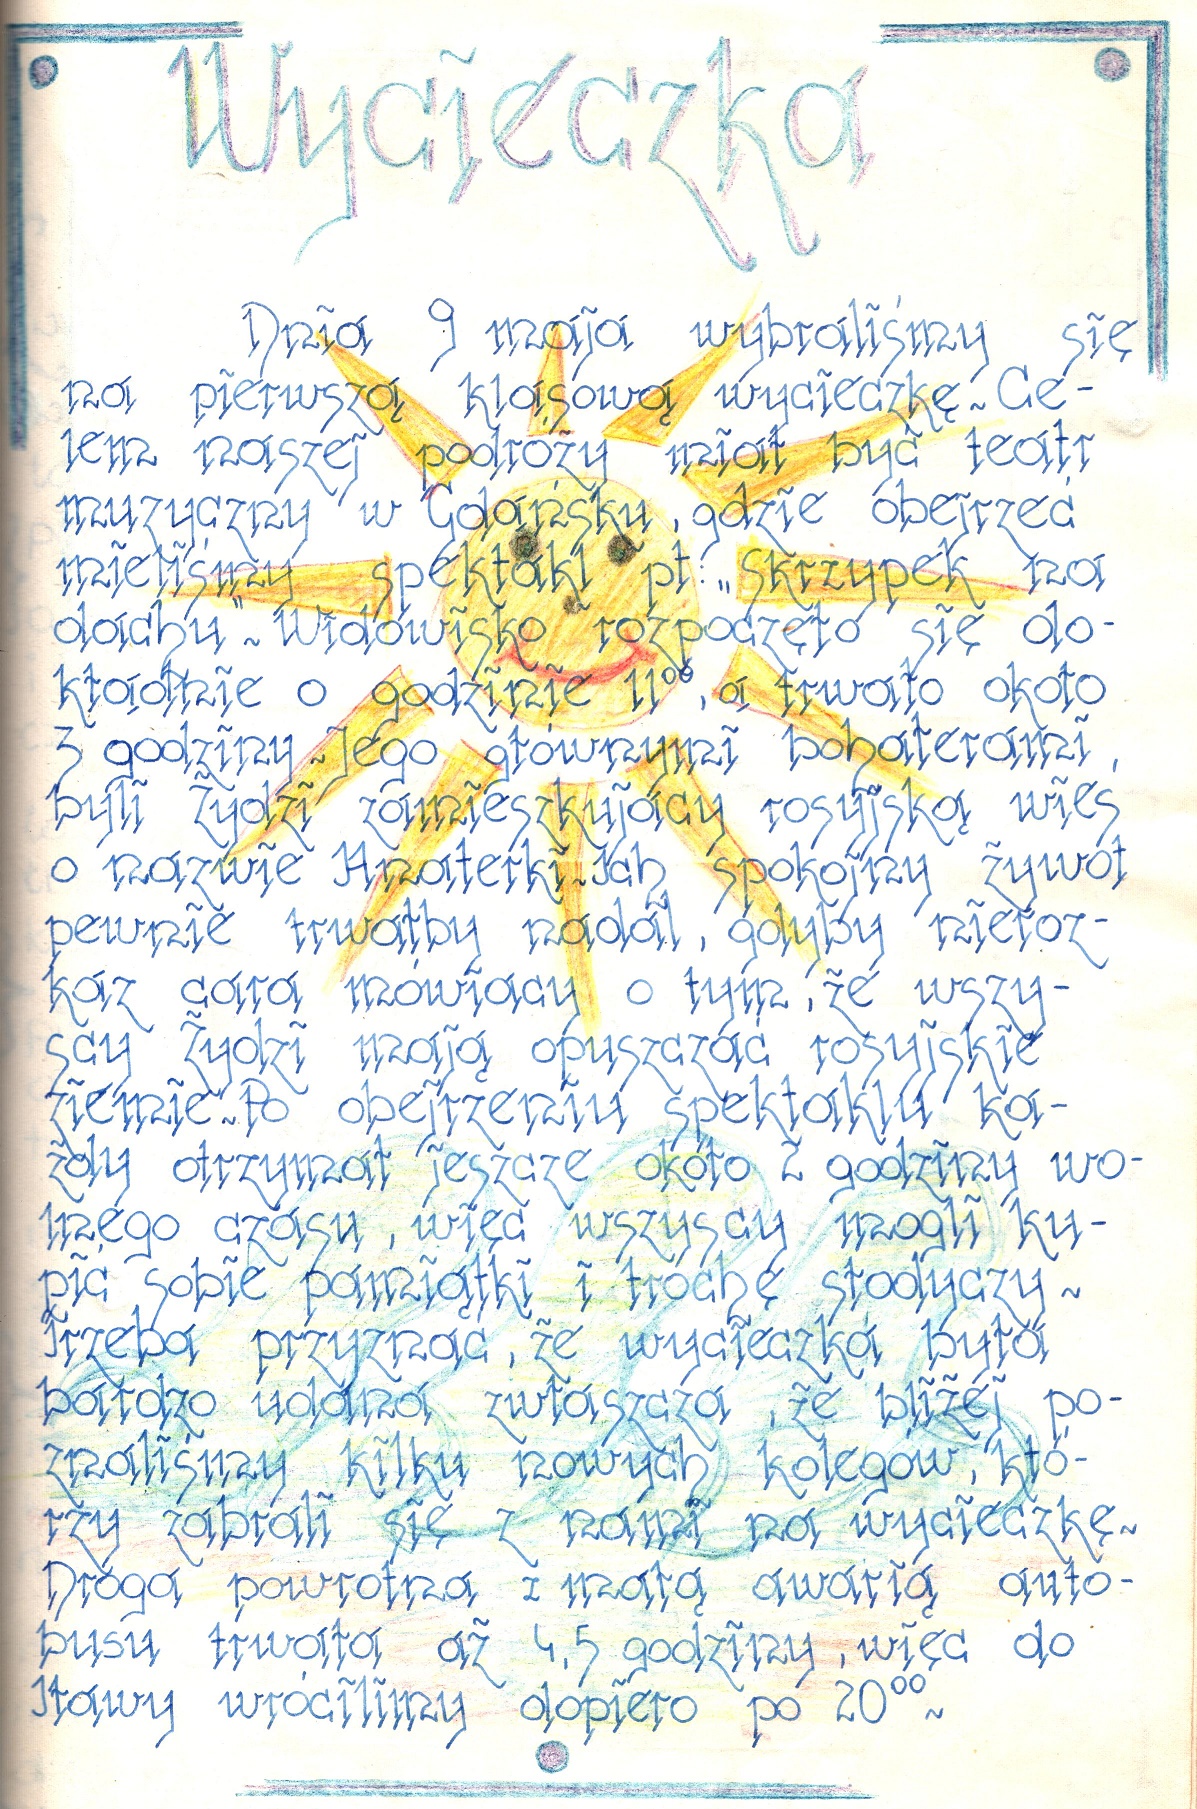 Wycieczka
Dnia 9 maja wybraliśmy się
na pierwszą klasową wycieczkę. Ce-
lem naszej podróży miał być teatr
muzyczny w Gdańsku, gdzie obejrzeć
mieliśmy spektakl pt: „Skrzypek na
dachu". Widowisko rozpoczęło się do-
kładnie o godzinie 11⁰⁰, a trwało około
3 godziny. Jego głównymi bohaterami,
byli Żydzi zamieszkujący rosyjską wieś
o nazwie Anaterki. Ich spokojny żywot
pewnie trwałby nadal, gdyby nieroz-
kaz cara mówiący o tym, że wszy-
scy Żydzi mają opuszczać rosyjskie
ziemie. Po obejrzeniu spektaklu ka-
żdy otrzymał jeszcze około 2 godziny wo-
lnego czasu, więc wszyscy mogli ku-
pić sobie pamiątki i trochę słodyczy.
Trzeba przyznać, że wycieczka była
bardzo udana zwłaszcza, że bliżej po-
znaliśmy kilku nowych kolegów, któ-
rzy zabrali się z nami na wycieczkę.
Droga powrotna z małą awarią auto-
busu trwała aż 4,5 godziny, więc do
Iławy wrócilimy dopiero po 20⁰⁰.